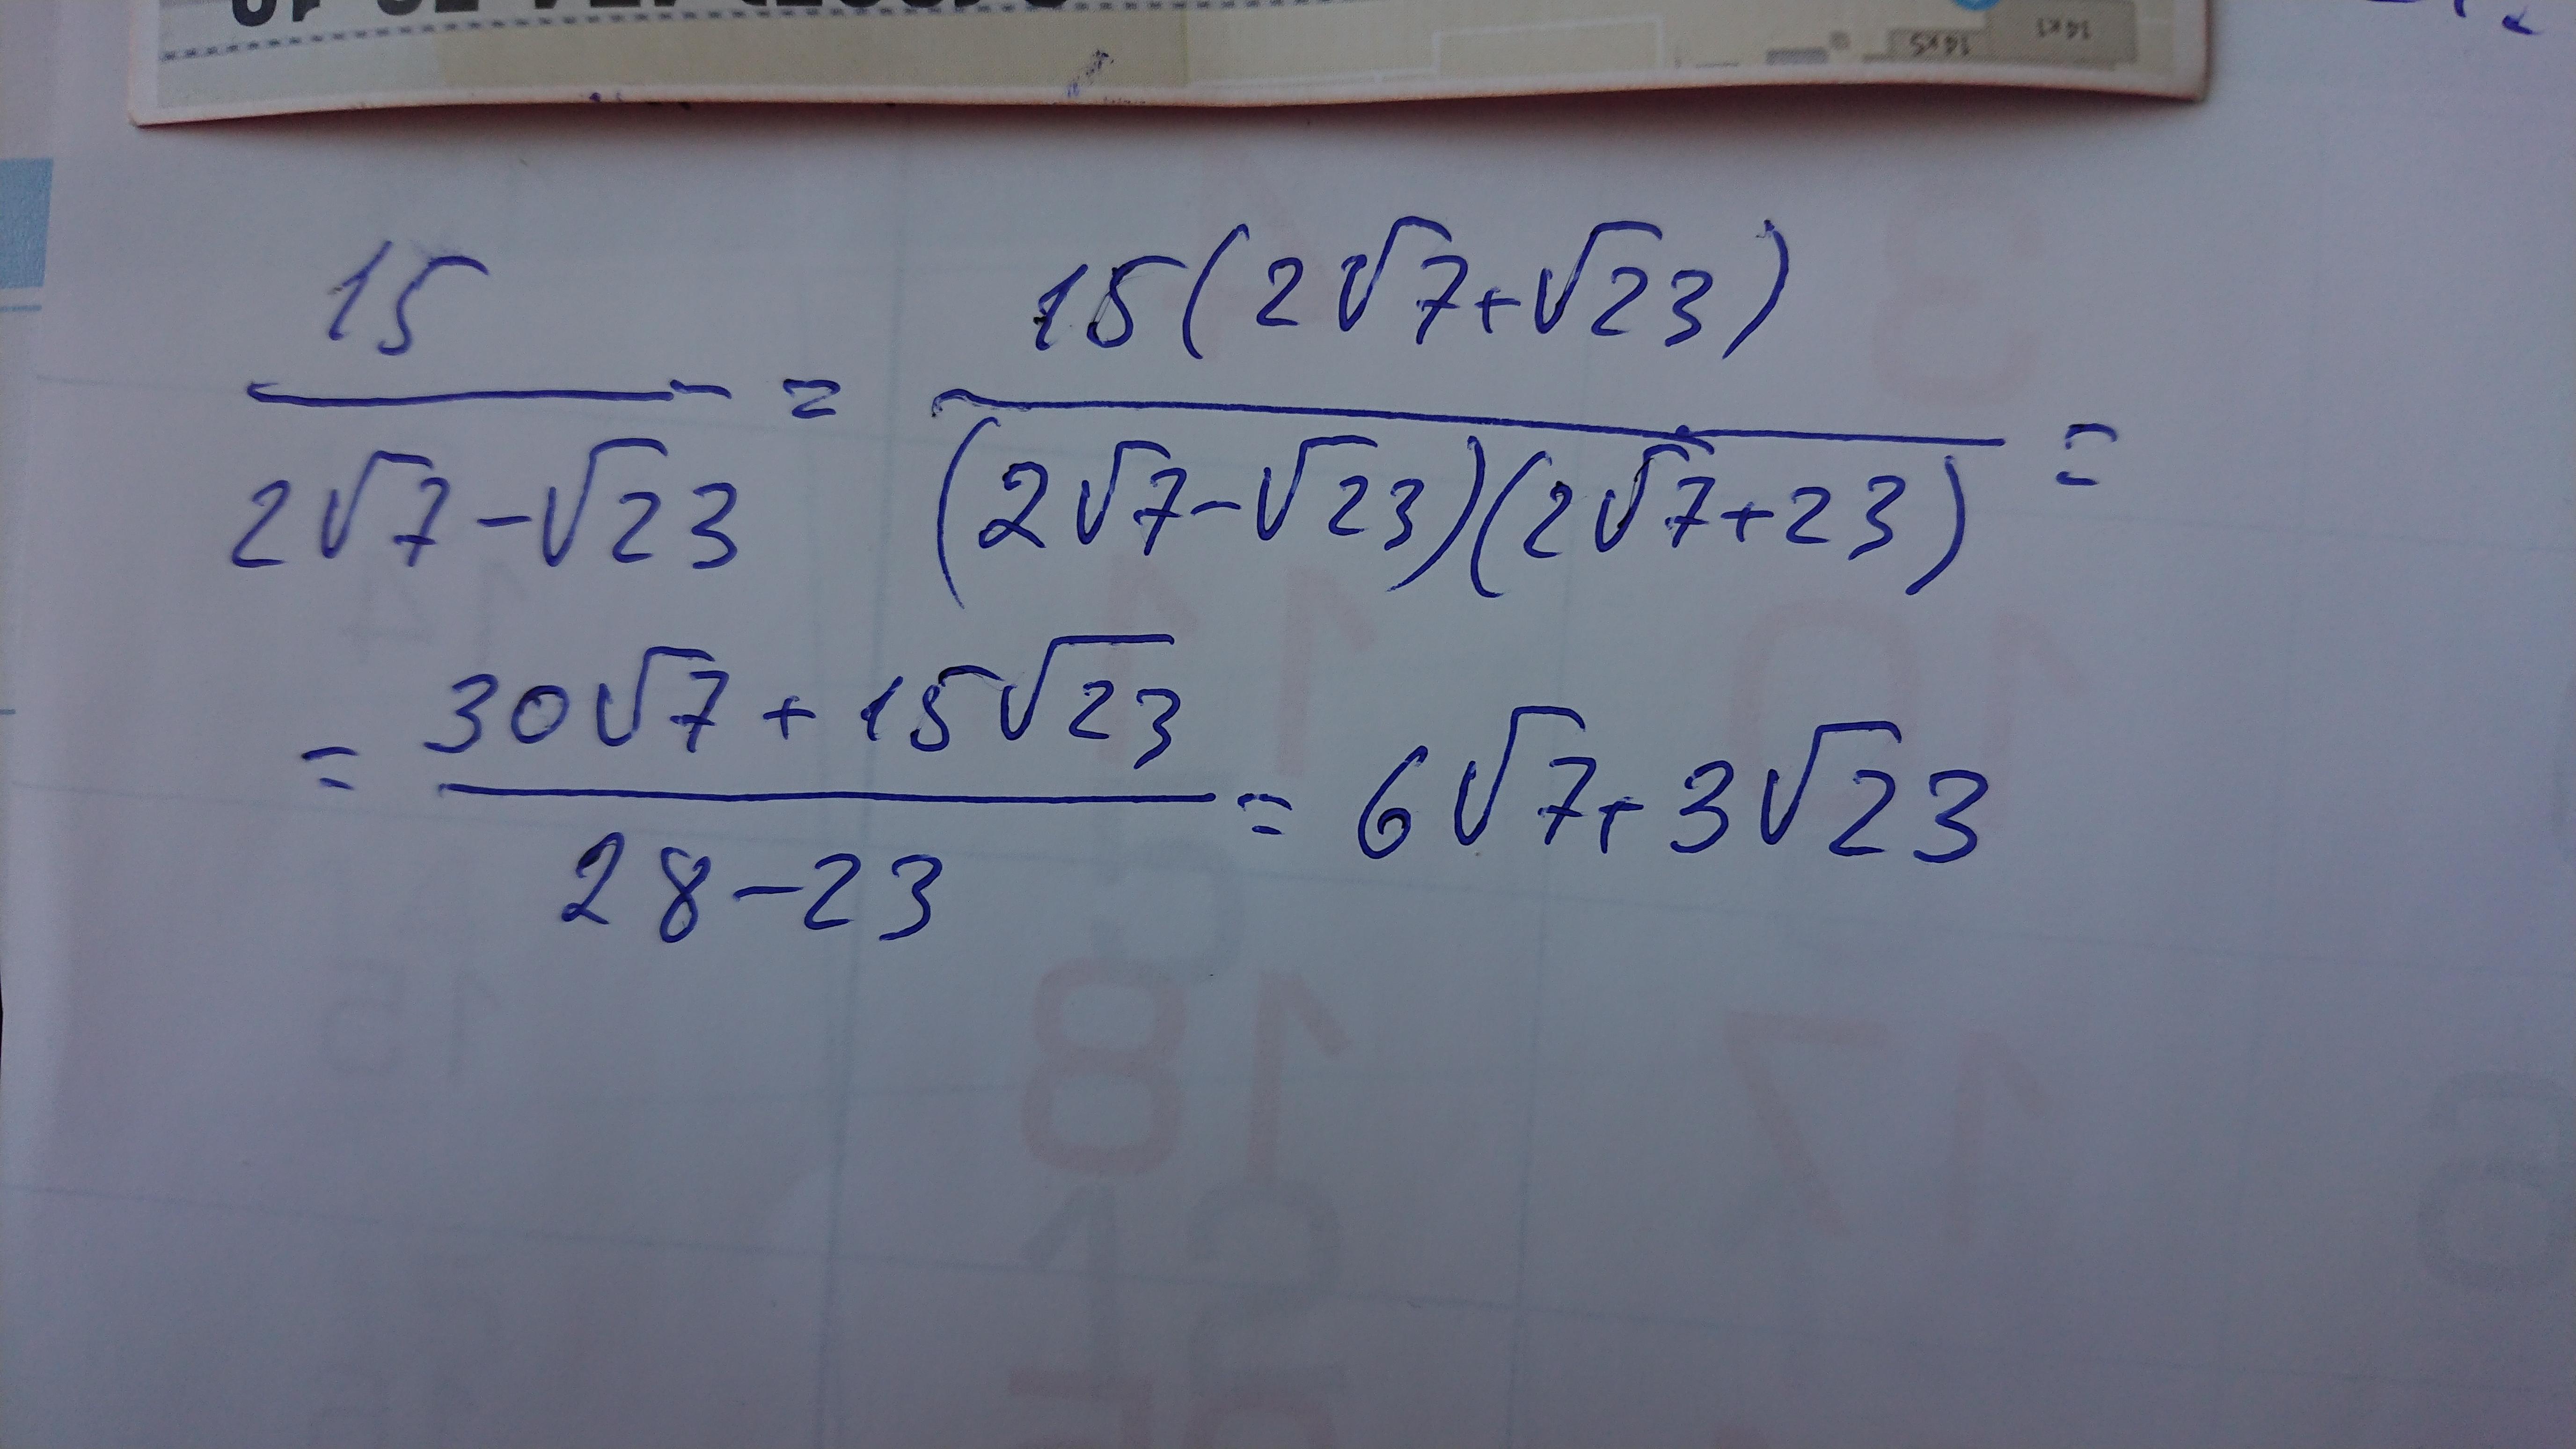 15/(2√7-√23) = 15(2√7+√23)/((2√7-√23)(2√7+23)) =
= (30√7+15√23)/(28-23) = 6√7+3√23